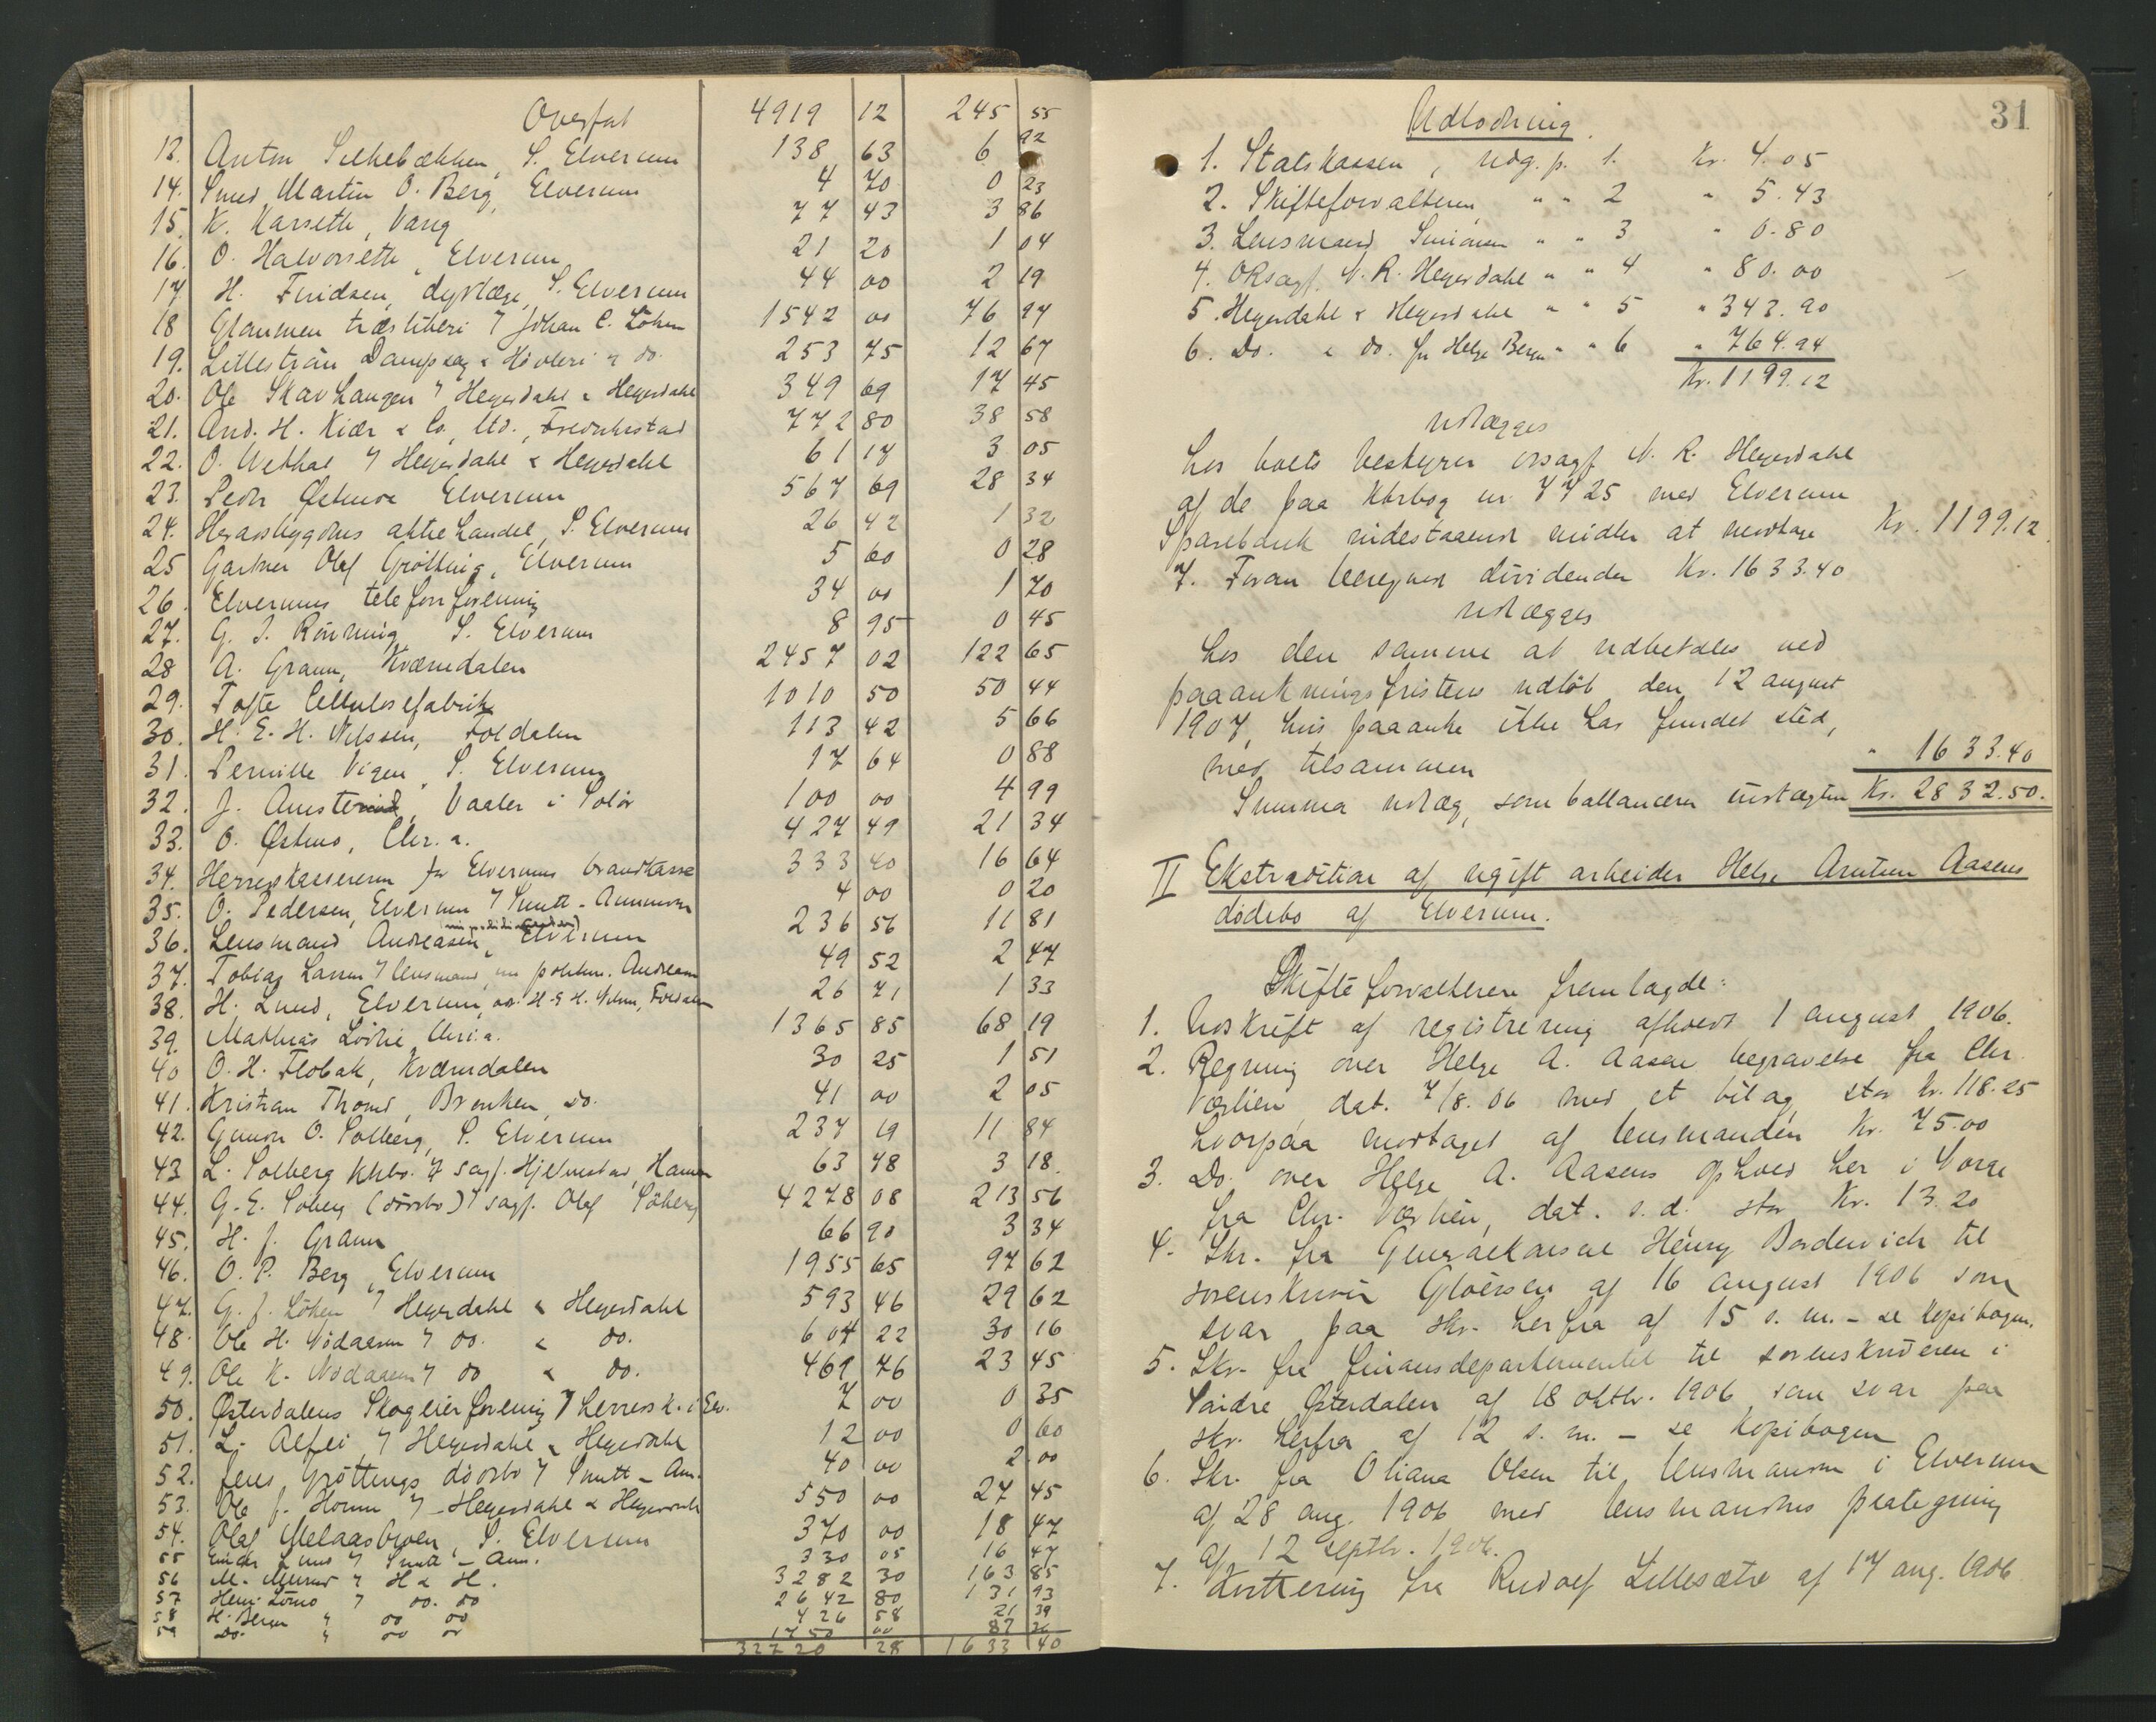 Overført 4919 12 245 55
13. Anton Silkebækken, S. Elverum 138 63 6 92
14. Smed Martin O. Berg, Elverum 4 70 0 23
15. K. Karseth, Vang 77 43 3 86
16. O. Halvorseth, Elverum 21 20 1 04
17 H. dyrlæge, S. Elverum 44 00 2 19
18 Glommen træsliberi 7 Johan C. Løken 1542 00 76 97
19. Lillestrøm Dampsag & Høvleri 7 do. 253 75 12 67
20. Ole Skavhaugen 7 Heyerdahl & Heyerdahl 349 69 17 45
21. And. H. Kiær & Co. ltd., Fredrikstad 772 80 38 58
22. O. Uethal 7 Heyerdahl & Heyerdahl 61 17 3 05
23. Peder Østmoe Elverum 567 69 28 34
24. Heraasbygdens aktiehandel, S. Elverum 26 42 1 32
25 Gartner Olaf Grøtting, Elverum 5 60 0 28
26. Elverums telefonforening 34 00 1 70
27. G. J. Rønning S. Elverum 8 95 0 45
28 A. Gram, Kværndalen 2457 02 122 65
29. Tofte Cellulosefabrik 1010 50 50 44
30. H. E. H. Nilssen, Foldalen 113 42 5 66
31. Pernille Vigen, S. Elverum 17 64 0 88
32. J. Vaaler i Solør 100 00 4 99
33. O. Østmo, Chr.a. 427 49 21 34
34. Herredskassereren for Elverums brandkasse 333 40 16 64
35. O. Pedersen, Elverum 7 Smitt-Ammundsen 4 00 0 20
36. Lensmand Andreasen, Elverum 236 56 11 81
37. Tobias Larsen 7 lensmand, nu politim. Andreasen 49 52 2 47
38. H. Lund, Elverum, H. E. H. Nilsen, Foldalen 26 71 1 33
39. Mathias Løvlie Chr.a. 1365 85 68 19
40 O. H. Flobak, Kværndalen 30 25 1 51
41. Kristian Thomd, Brenken, do. 41 00 2 05
42. Gunder O. Solberg, S. Elverum 237 19 11 84
43 L. Solberg kkbo. 7 sagf. Hjelmstad, Hamar 63 48 3 18
44. G. E. Søberg (dødsbo) 7 sagf. Olaf Søberg 4278 08 213 56
45. H. J. Gram 66 90 3 34
46. O. P. Berg, Elverum 1955 65 97 62
47. G. J. Løken 7 Heyerdahl & Heyerdahl 593 46 29 62
48. Ole H. Nødaasen 7 do. & do. 604 22 30 16
49. Ole K. Nødaasen 7 do & do. 469 76 23 45
50. Østerdalens Skogeierforening 7 herredsk. i Elv. 7 00 0 35
51. L. Alfei 7 Heyerdahl & Heyerdahl 12 00 0 60
52. Jens Grøttings dødsbo 7 Smitt-Am. 40 00 2 00
53. Ole J. Homm 7 Heyerdahl & Heyerdahl 550 00 27 45
54. Olaf Melaasbroen, S. Elverum 370 00 18 47
55 Einar Lund 7 Smitt-Am. 330 05 16 47
56 M. 7 H & H. 3282 30 163 85
57 Henr. Lømo 7 do. do 2642 80 131 93
58 H. Bergn 7 do do 426 58 21 39
59 Do. 7 do do 1750 00 87 36
32720 28 1633 40
31
Udlodning.
1. Statskassen, udg. p. 1. Kr. 4.05
2. Skifteforvalteren " " 2 " 5.43
3. Lensmand Simonsen " " 3 " 0.80
4. Oksagf. N. R. Heyerdahl " " 4 " 80.00
5. Heyerdahl & Heyerdahl " " 5 " 343.90
6. Do. & do. for Helge Bergn " " 6 " 764.94
Kr. 1199.12
udlægges
hos boets bestyrer orsagf N. R. Heyerdahl
af de paa Kbrbog nr. 7725 med Elverum
Sparebank indestaaende midler at modtage Kr. 1199.12
7. Foran beregnede dividender Kr. 1633.40
udlægges
hos den samme at udbetales ved
paaankningsfristens udløb den 12 august
1907, hvis paaanke ikke har fundet sted,
med tilsammen " 1633.40
Summa udlæg, som ballancerer indtægten Kr. 2832.50.
II Ekstradition af ugift arbeider Helge Arntsen Aasens
dødsbo af Elverum.
Skifteforvalteren fremlagde:
1. Udskrift af registrering afholdt 1 august 1906.
2. Regning over Helge A. Aasens begravelse fra Chr.
Værlien, dat. 7/8. 06 med et bilag, stor Kr. 118.25
hvorpaa modtaget af lensmanden Kr. 75.00
3. Do. over Helge A. Aasens ophold her i Norge
fra Chr. Værlien, dat. s.d. stor Kr. 13.20
4. Skr. fra Generalkonsul Henry Bordewich til
sorenskriver Gløersen af 16 august 1906 som
svar paa skr. herfra af 15 s. m. - se Kopibogen.
5. Skr. fra finansdepartementet til sorenskriveren i
Søndre Østerdalen af 18 oktbr. 1906 som svar paa
skr. herfra af 12 s. m. - se Kopibogen
6. Skr. fra Oliana Olsen til lensmanden i Elverum
af 28 aug. 1906 med lensmandens paategning
af 12 septbr. 1906.
7. Kvittering fra Rudolf Lillesæter af 17 aug. 1906